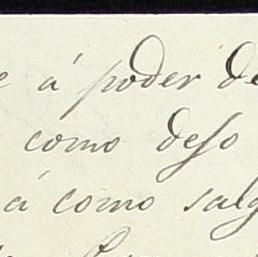 e á poder de
como deso
á como salg